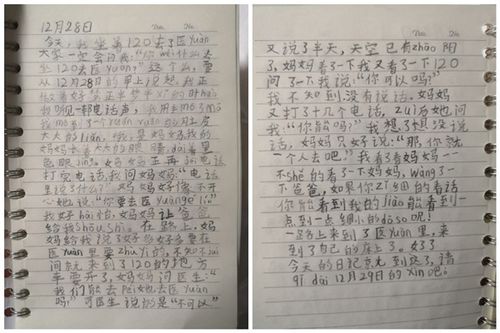 12月28日
今天,我坐着120去了医yuàn
大家一定会问我:“你wèi什么去
坐120去医yuàn?”这个么,要
从12月28日的早上说起。我正
做着好梦正平梦半yì的时hòu
我听见一部电话声
大大的liǎn,哦,是妈妈,我的
妈妈长着大大的眼睛,dài着黑
色眼jìng。妈妈正再jiē电话
打完电话,我问妈妈:“电话
里说了什么?”妈妈好像不开
心地说:“你要去医yuàngé lí。”
我好hài怕,妈妈让爸爸
给我shōu shi。在路上,妈
妈给我说了好多好多要在
医yuàn里要zhù yì的,不知不
间就来到了120的地方
车要开了,妈妈问医生:“
我们能去péi她去医yuàn
吗?”可医生说的是“不可以”
又说了半天,天空已有zhāo阳
了,妈妈看了一下我又看了一下120
问了一下我说:“你可以吗?”
我不知到,没有说话。妈妈
又打了十几个电话,zuì后她问
我:“你能吗?”我想了想没说
话,妈妈只好说:“那,你就
一个人去吧。”我看了看妈妈一一
不shě的看了一下妈妈,wàng了一
下爸爸,如果你zǐ细的看话
你能看到我的jiǎo能看到一
点到一点细小的dǒu哦!
一路上来到了医yuàn里,来
到了自己的床上了。好了
今天的日记就先到这了,请
qī dài 12月29日的xīn吧!